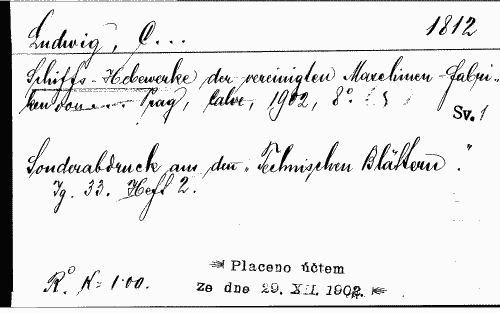 1812
Ludwig, C...
Schiffs-Hebewerke der vereinigten Maschinen-Fabri-
ken vorm ... Prag, Calve, 1902, 8°.
Sv. 1
Sonderabdruck aus den „Technischen Blättern".
Jg. 33. Heft 2.
Placeno účtem
R° K= 1·00.
ze dne 29. XII. 1902.